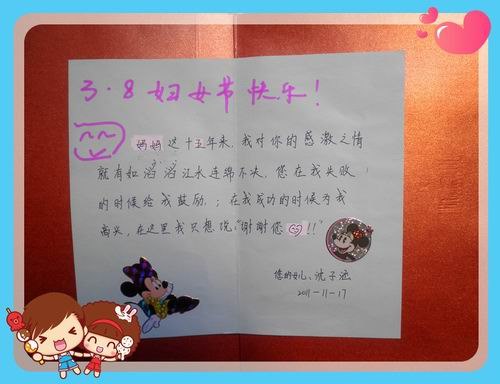 3·8妇女节快乐!
妈妈这十五年来,我对你的感激之情
就有如滔滔江水连绵不决,您在我失败
的时候给我鼓励,;在我成功的时候为我
高兴,在这里我只想说:"谢谢您!!"
您的女儿、沈子涵
2011-11-17